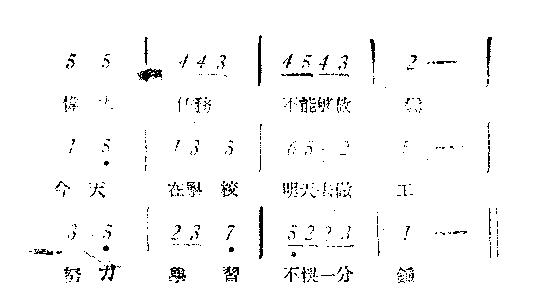 5 5 | 4 4 3 | 4 5 4 3 | 2 —
偉大 任務 不能够做
1 5 | 1 3 5 | 6 5 2 | —
今天 在學校 明天去做 工
3 5 | 2 3 7 | 5 2 2 3 | 1 —
努力 學習 不悞一分 鐘